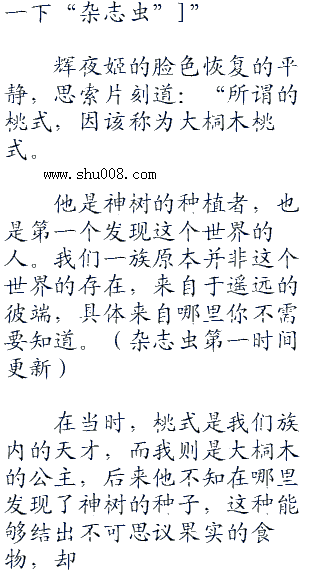 一下“杂志虫”]”
辉夜姬的脸色恢复的平
静，思索片刻道：“所谓的
桃式，因该称为大桐木桃
式。
www.shu008.com
他是神树的种植者，也
是第一个发现这个世界的
人。我们一族原本并非这个
世界的存在，来自于遥远的
彼端，具体来自哪里你不需
要知道。（杂志虫第一时间
更新）
在当时，桃式是我们族
内的天才，而我则是大桐木
的公主，后来他不知在哪里
发现了神树的种子，这种能
够结出不可思议果实的食
物，却